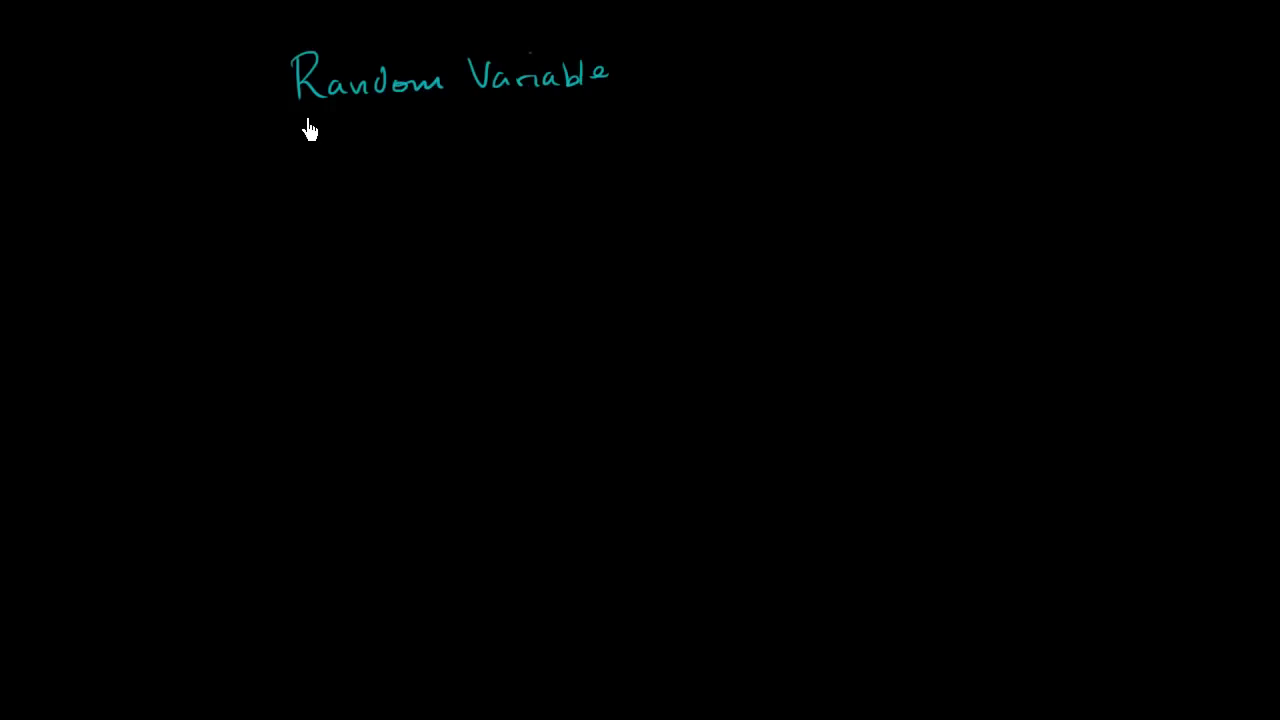 Random Variable